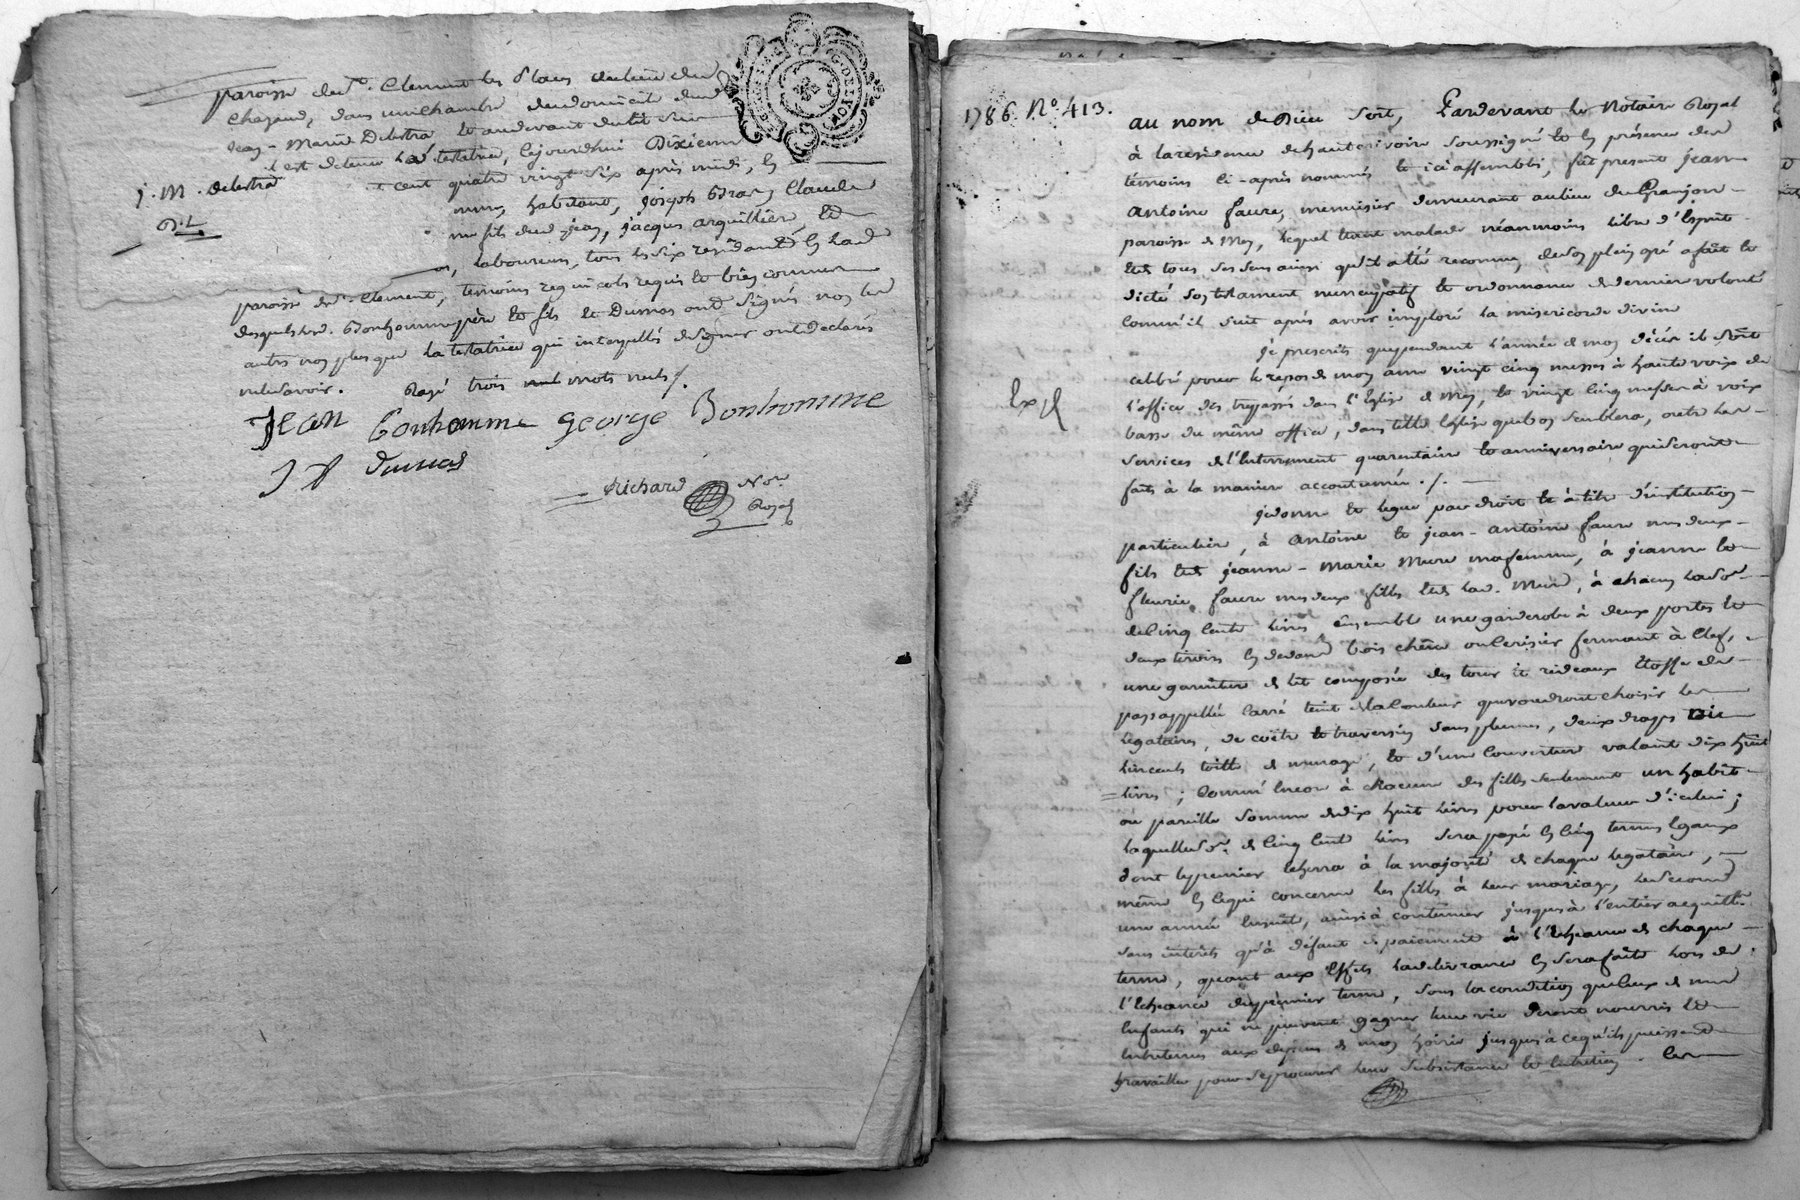 paroisse de St. Clement les places au lieu du
Chazaud, dans une chambre du domicile dud
Jean-Marie Delestra et au devant du lit où
est detenue lad. testatrice, cejourdhui Dixieme
cent quatre vingt six après midi, En
J. M. delestra
habitant, joseph Claude
fils de jean, jacques arquilliere, et
laboureurs, tous les six residants En lad
paroisse de St. Clement, temoins requis et bien connus
desquels led. Bonhomme père et fils et Dumas ont signés non les
autres non plus que la testatrice qui interpellés de signer ont declarés
ne le savoir. Rayé trois mots nuls /.
Jean bonhomme george Bonhomme
dumas
Richard Nore
Royal
1786 No. 413.
au nom de Dieu soit, Pardevant le Notaire Royal
à la residence de hauterivoire soussigné et En présence des
témoins ci-après nommés et ici assemblés, fût present jean
antoine faure, menuisier demeurant au lieu de Granjon
paroisse de Mey, lequel Etant malade néanmoins libre d'Esprit
Et de tous ses sens ainsi qu'il a été reconnu, de son plein gré a fait et
dicté son testament nuncupatif et ordonnance de derniere volonté
Comm'il suit après avoir imploré la misericorde divine
je prescrits que pendant l'année de mon décès il soit
celebré pour le repos de mon ame vingt cinq messes à haute voix de
Exp
l'office des trepassés dans l'Eglise de Mey, et vingt cinq messes à voix
basse du même office, dans telle Eglise que bon semblera, outre les
services de l'Enterrement quarantaine et anniversaire qui seront
faits à la maniere accoutumée. /.
je donne et legue par droit et à titre d'institution
particuliere, à antoine et jean-antoine faure mes deux
fils Et de jeanne-marie Mure ma femme, à jeanne et
fleurie faure mes deux filles Et de lad. Mure, à chacun la some
de Cinq Cents livres Ensemble une garderobe à deux portes et
deux tiroirs En devant bois chêne ou Cerisier fermant à Clef,
une garniture de lit composée des tour et rideaux Etoffe du
pays appellée Carré teint de la Couleur que voudront choisir les
legataires, de coëtre et traversin sans plumes, deux draps
linceuls toille de menage, et d'une Couverture valant dix huit
livres; Comm' Encor à chacune des filles seulement un habit
ou pareille somme de dix huit livres pour la valeur d'icelui;
laquelle some de Cinq Cent livres sera payée En Cinq termes Egaux
dont le premier Echerra à la majorité de chaque legataire,
même En ce qui concerne les filles à leur mariage, le second
une année Ensuite, ainsi à continuer jusques à l'entier acquittt.
sans interêts qu'à défaut de paiement à l'Echeance de chaque
terme, quant aux Effets la delivrance En sera faite lors de
l'Echeance du premier terme, sous la condition que Ceux de mes
Enfants qui ne peuvent gagner leur vie seront nourris et
Entretenus aux depens de mon hoirie jusques à ce qu'ils puissent
travailler pour se procurer leur subsistance et Entretien. Les